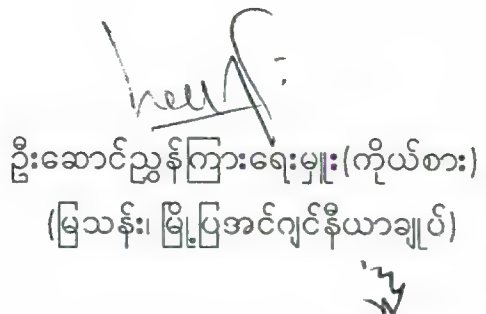 ဦးဆောင်ညွှန်ကြားရေးမှူး(ကိုယ်စား)
(မြသန်း၊ မြို့ပြအင်ဂျင်နီယာချုပ်)